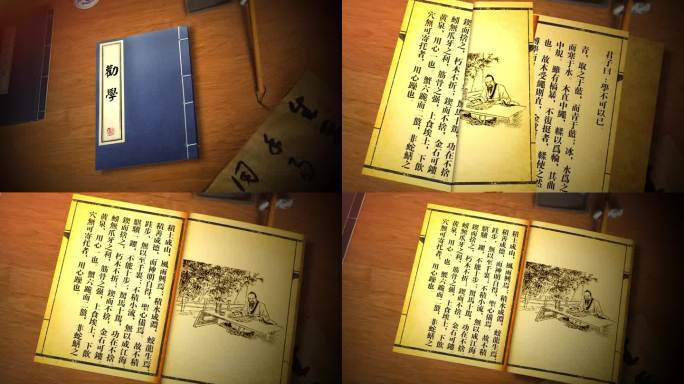 勸學
君子曰：學不可以已
青，取之于藍，而青于藍；冰，水為之
而寒于水。木直中繩，輮以為輪，其曲
中規，雖有槁暴，不復挺者，輮使之然
也。故木受繩則直，金
鍥而捨之，朽木不折；鍥而不捨，金石可鏤
螾無爪牙之利，筋骨之強，上食埃土，下飲
黃泉，用心一也。蟹六跪而二螯，非蛇蟮之
穴無可寄托者，用心躁也。
積土成山，風雨興焉；積水成淵，蛟龍生焉；
積善成德，而神明自得，聖心備焉。故不積
跬步，無以至千里；不積小流，無以成江海
騏驥一躍，不能十步；駑馬十駕，功在不捨
鍥而捨之，朽木不折；鍥而不捨，金石可鏤
螾無爪牙之利，筋骨之強，上食埃土，下飲
黃泉，用心一也。蟹六跪而二螯，非蛇蟮之
穴無可寄托者，用心躁也。
積土成山，風雨興焉；積水成淵，蛟龍生焉；
積善成德，而神明自得，聖心備焉。故不積
跬步，無以至千里；不積小流，無以成江海
騏驥一躍，不能十步；駑馬十駕，功在不捨
鍥而捨之，朽木不折；鍥而不捨，金石可鏤
螾無爪牙之利，筋骨之強，上食埃土，下飲
黃泉，用心一也。蟹六跪而二螯，非蛇蟮之
穴無可寄托者，用心躁也。